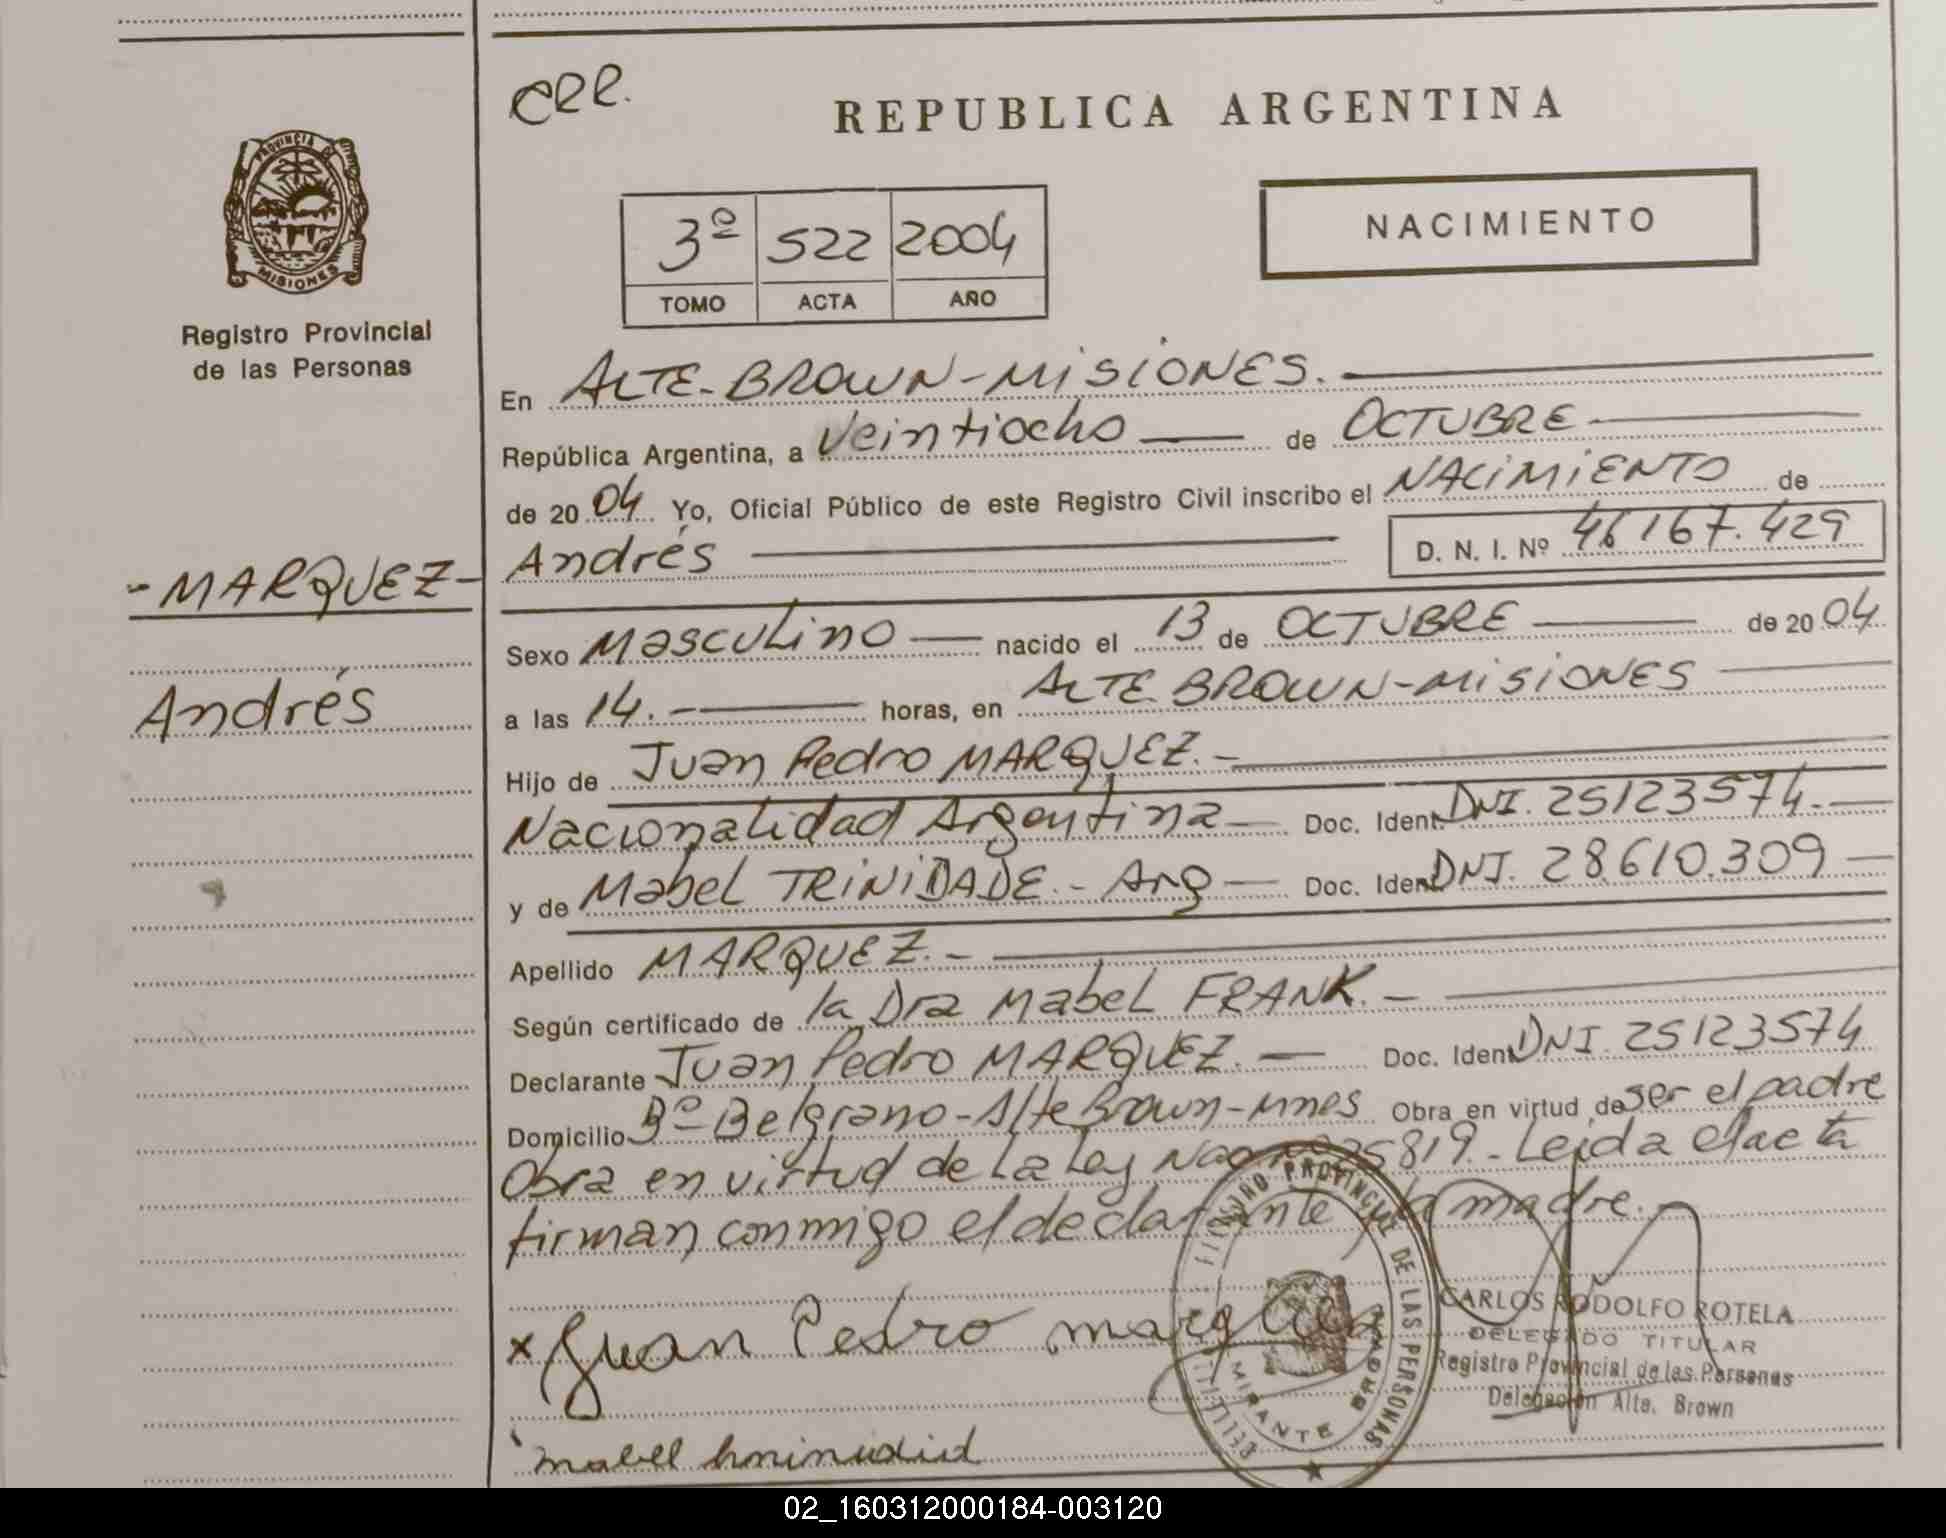 CRR.
REPUBLICA ARGENTINA
PROVINCIA DE
MISIONES
Registro Provincial
de las Personas
3º 522 2004
TOMO ACTA AÑO
NACIMIENTO
En ALTE-BROWN-MISIONES.
República Argentina, a veintiocho de OCTUBRE
de 2004 Yo, Oficial Público de este Registro Civil inscribo el NACIMIENTO de
Andrés D. N. I. Nº 46167.429
-MARQUEZ-
Andrés
Sexo Masculino nacido el 13 de OCTUBRE de 2004
a las 14. horas, en ALTE BROWN-MISIONES
Hijo de Juan Pedro MARQUEZ.-
Nacionalidad Argentina Doc. Ident. DNI. 25123574.-
y de Mabel TRINIDADE.- Arg Doc. Ident DNI. 28.610.309
Apellido MARQUEZ.-
Según certificado de la Dra Mabel FRANK.-
Declarante Juan Pedro MARQUEZ. Doc. Ident DNI. 25123574
Domicilio Bº Belgrano-Alte Brown-Mnes Obra en virtud de ser el padre
Obra en virtud de la Ley Nac 25819.- Leida el acta
firman conmigo el declarante y la madre.
x Juan Pedro marquez
REGISTRO PROVINCIAL DE LAS PERSONAS
ALMIRANTE BROWN
CARLOS RODOLFO ROTELA
DELEGADO TITULAR
Registro Provincial de las Personas
Delegación Alte. Brown
mabel
02_160312000184-003120